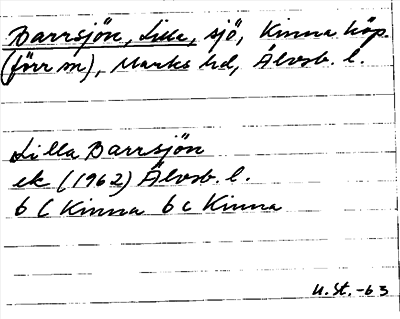 Barrsjön, Lilla, sjö, Kinna köp.
(förr sn), Marks hd, Älvsb. l.
Lilla Barrsjön
ek (1962) Älvsb. l.
6 C Kinna 6 c Kinna
U.St.-63